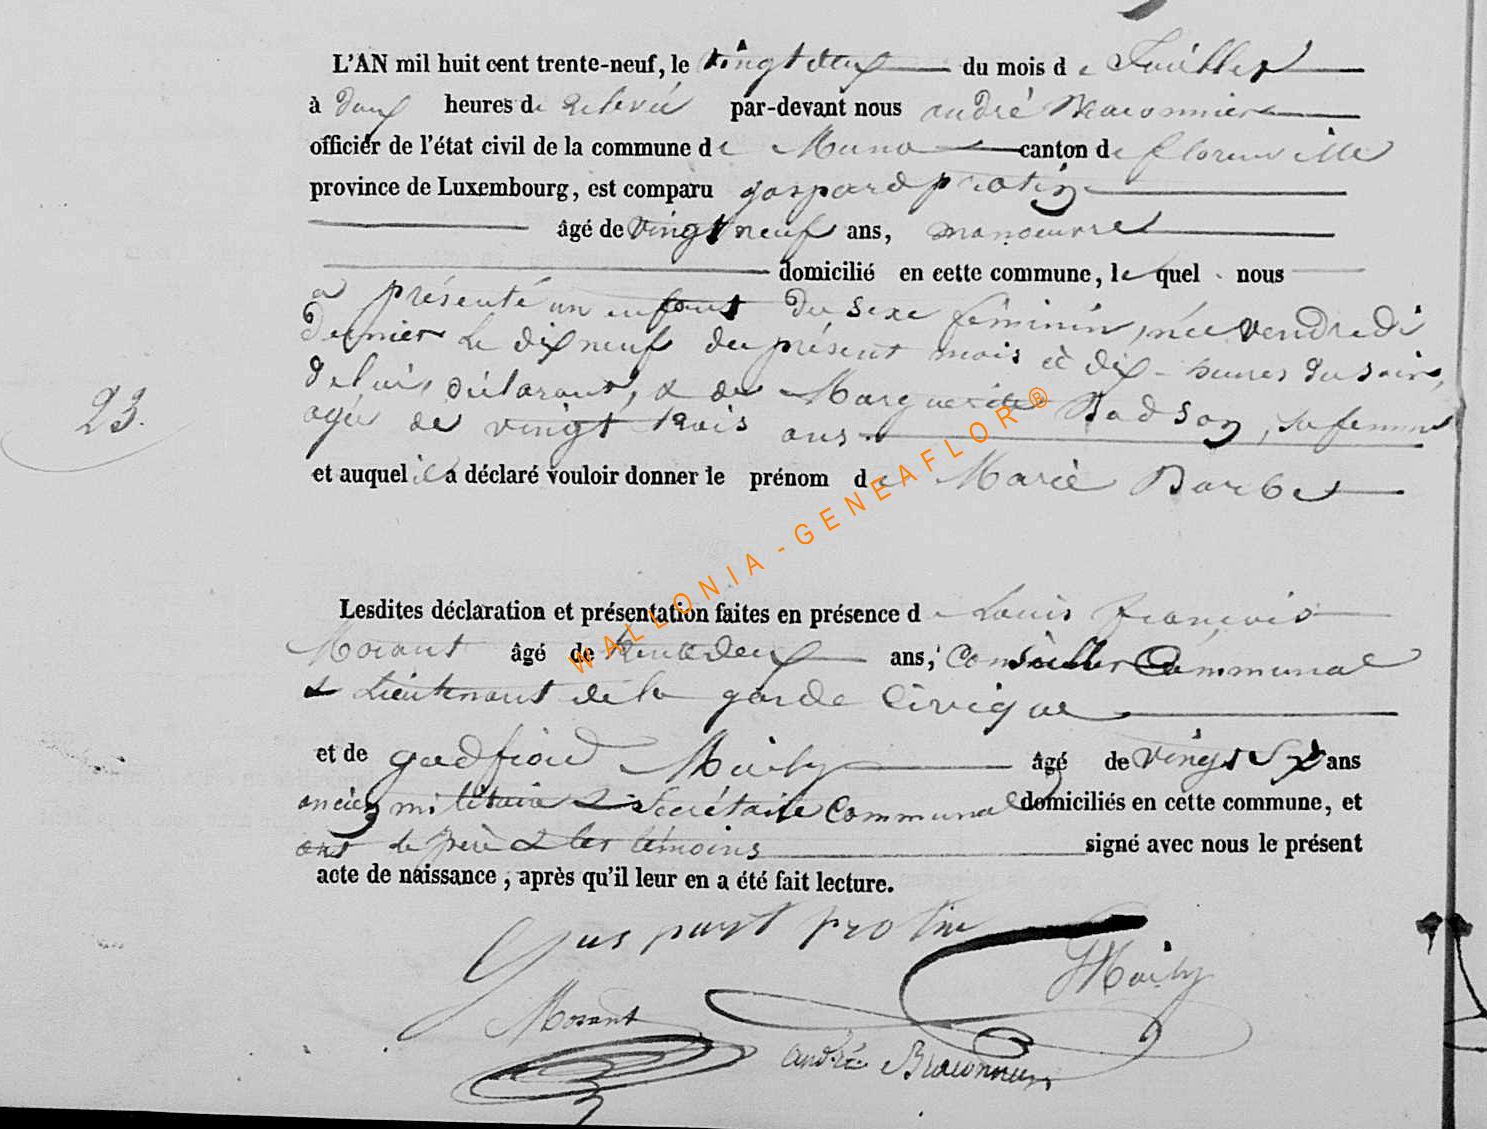 L'AN mil huit cent trente-neuf, le vingt deux du mois de Juillet
à deux heures de relevée par-devant nous andré Braconnier
officier de l'état civil de la commune de Muno canton de florenville
province de Luxembourg, est comparu gaspard protin
âgé de vingt neuf ans, manoeuvre
domicilié en cette commune, lequel nous
a présenté un enfant du sexe féminin, née vendredi
dernier le dix neuf du présent mois à dix heures du soir,
de lui, déclarant, & de Marguerite Badson, sa femme
agée de vingt trois ans
23.
et auquel il a déclaré vouloir donner le prénom de Marie Barbe
Lesdites déclaration et présentation faites en présence de Louis françois
Morant âgé de trente deux ans, Conseiller Communal
& Lieutenant de la garde Civique
et de godfroid Mailly âgé de vingt six ans
ancien militaire & Secrétaire Communal domiciliés en cette commune, et
ont le père & les témoins signé avec nous le présent
acte de naissance, après qu'il leur en a été fait lecture.
Gaspart protin
Mailly
Morant
andré Braconnier
WALLONIA - GENEAFLOR ®